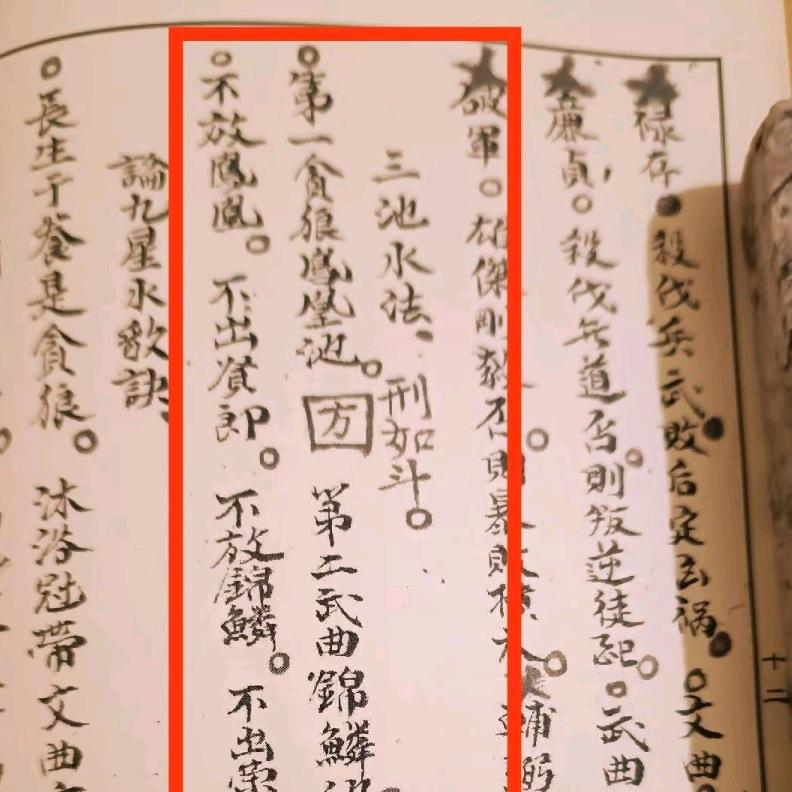 禄存。殺伐兵武敗后定玉祸。文曲
廉貞，。殺伐無道否則叛逆徒配。武曲
破軍。雄傑剛毅否則暴敗横夭輔弼
三池水法、刑如斗。
。第一貪狼鳳凰池。方 第二武曲錦鱗
。不放鳳凰。不出資郎。不放錦鱗。不出
論九星水歌訣、
。長生于养是貪狼。沐浴冠帶文曲
十二